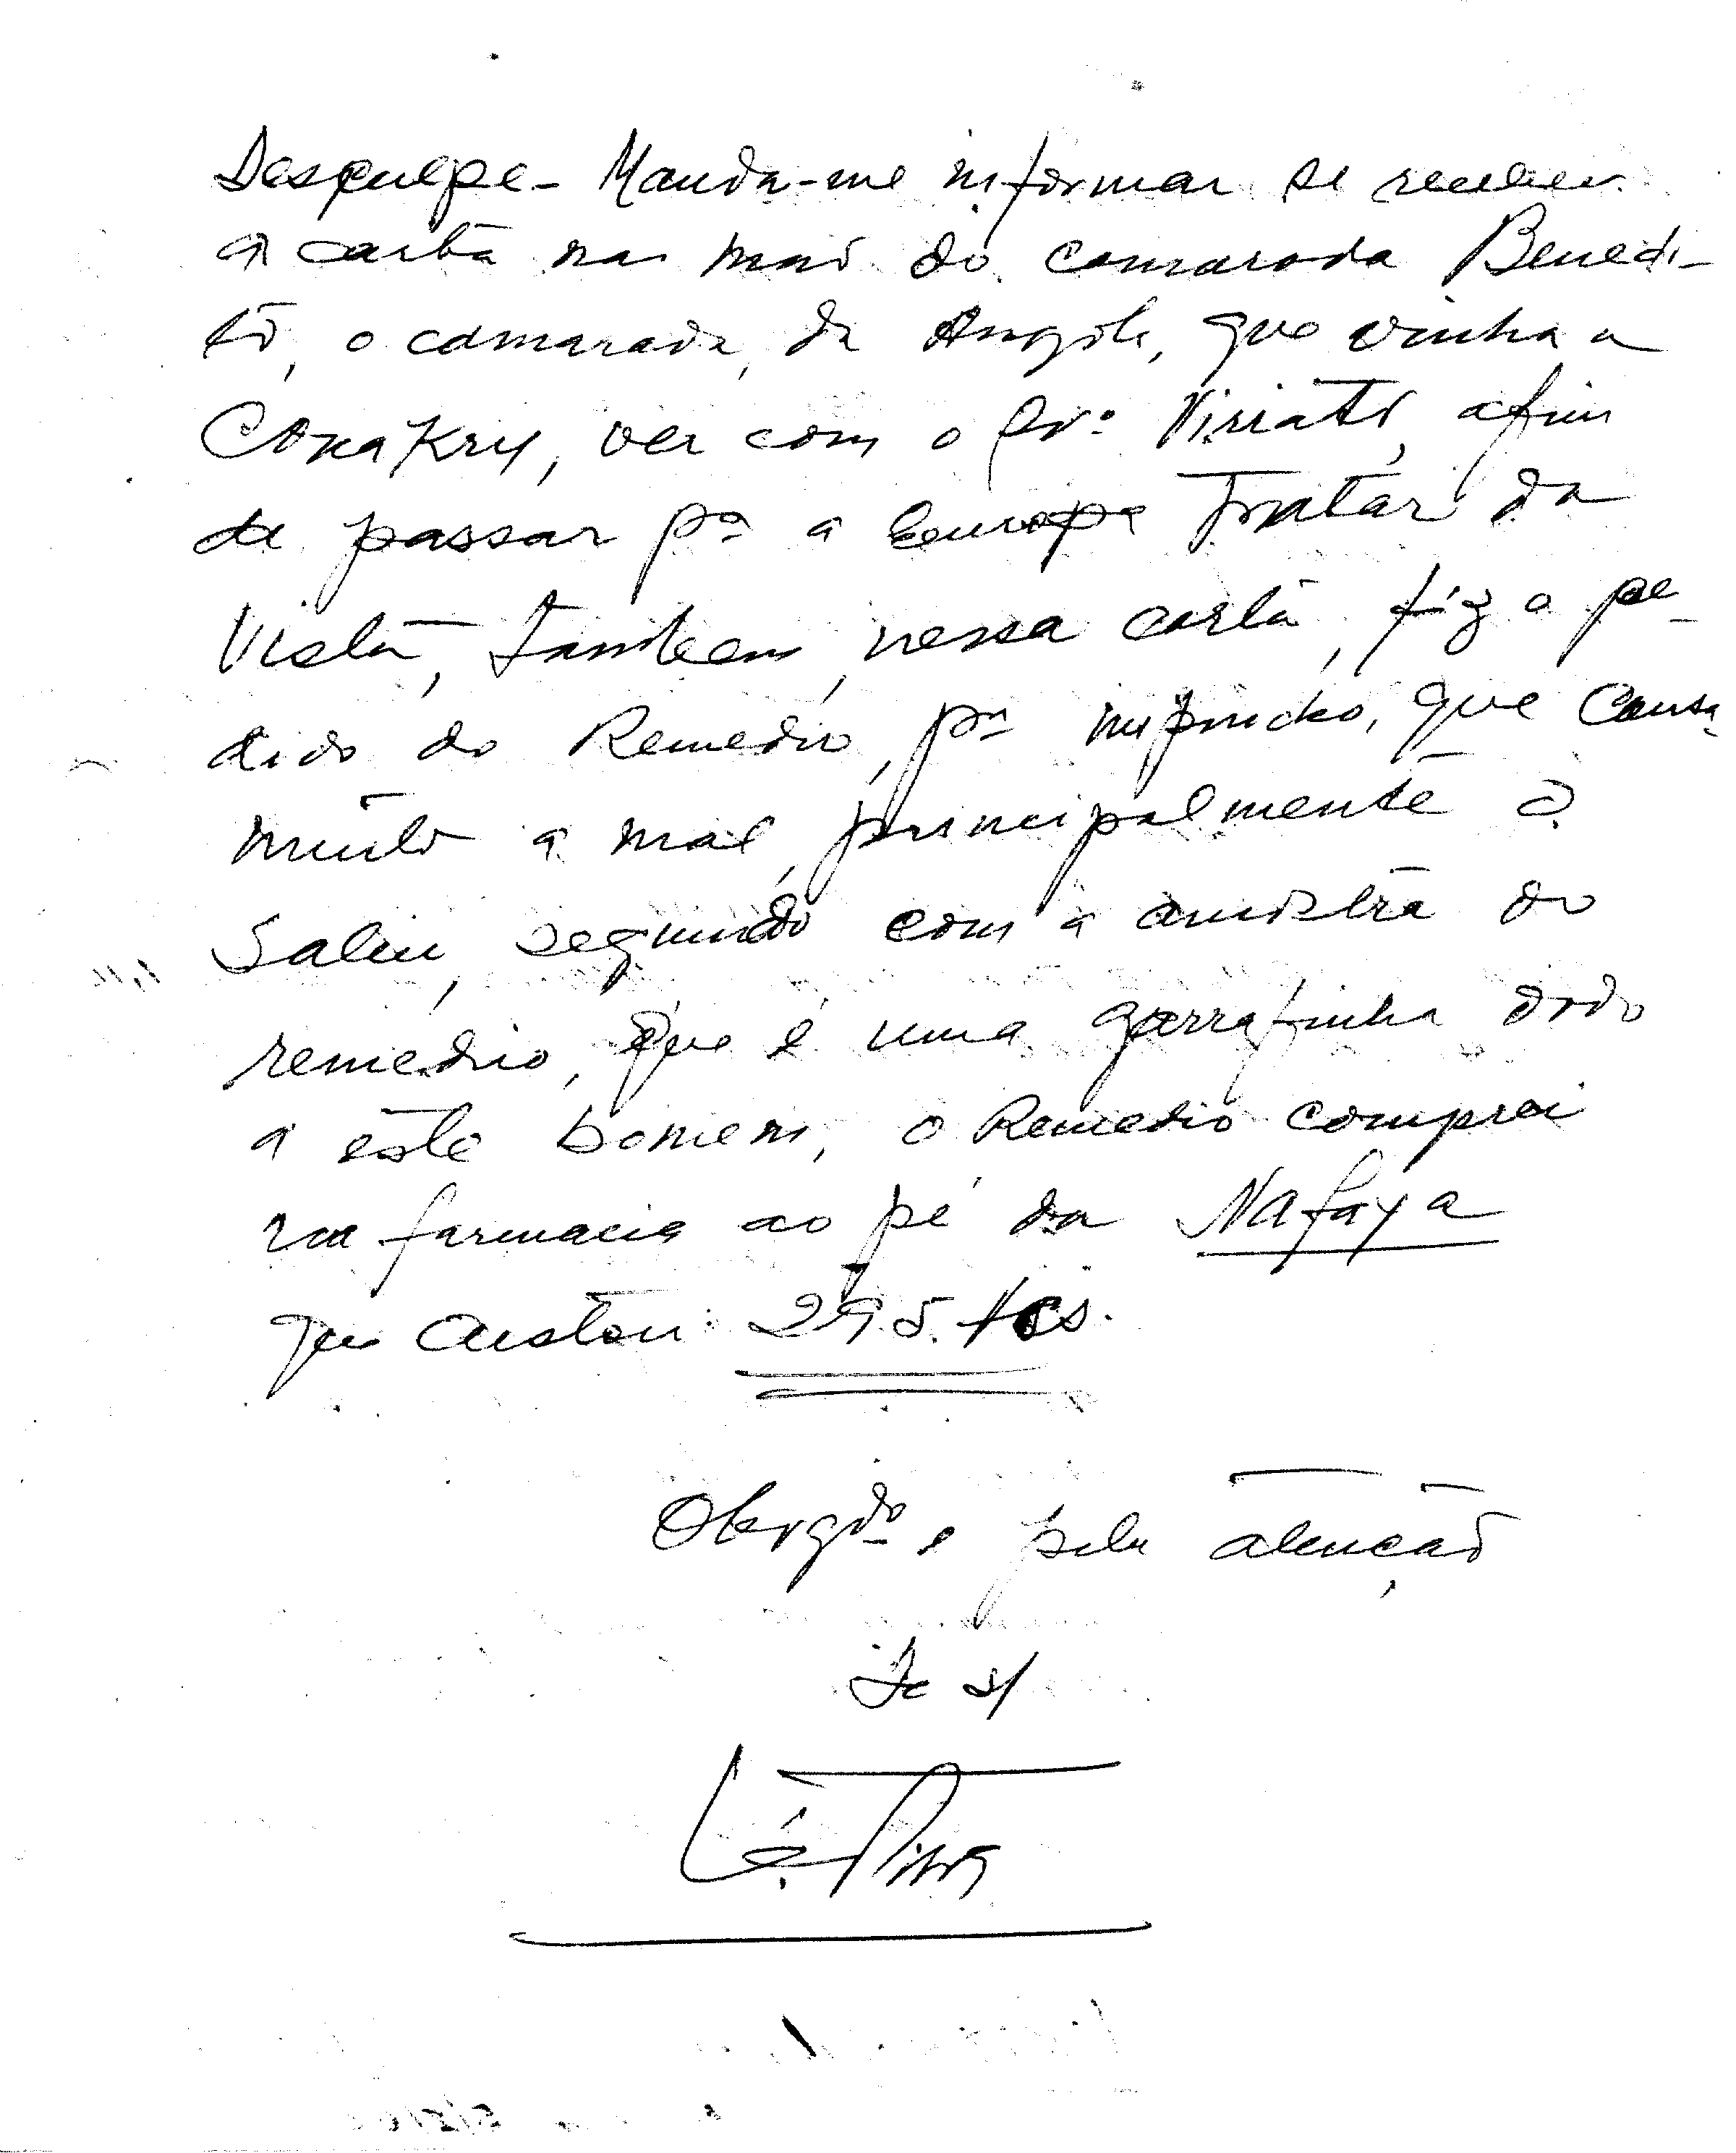 Desculpe - Manda-me informar se recebeu
a carta nas mão do camarada Benedi-
to, o camarada, da Angola, que vinha a
Conakry, ver com o Viriato, afim
de passar pª a Europa Tratar da
Vista, tambem, nessa carta, fiz o pe-
dido do Remedio, pª que causa
muito a mal, principalmente o
Saliu, segundo com a amostra do
remedio, que é uma garrafinha dado
a este homem, o Remedio comprei
na farmacia ao pé da Nafaya
que custou: 295. fcs.
Obrgdo e pela atenção